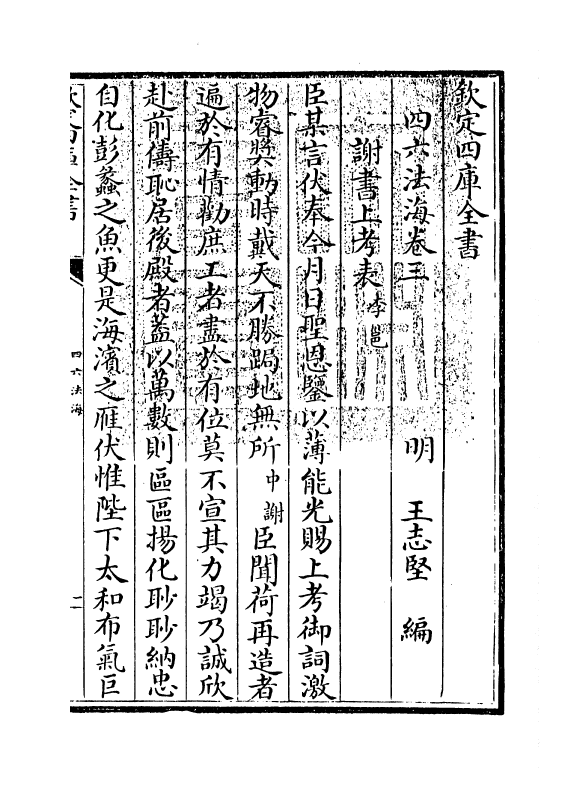 欽定四庫全書
四六法海卷三　明　王志堅　編
謝書上考表 李邕
臣某言伏奉今月日聖恩鑒以薄能光賜上考御詞激
物睿奬動時戴天不勝跼地無所 中謝 臣聞荷再造者
遍於有情勸庶工者盡於有位莫不宣其力竭乃誠欣
赴前儔恥居後殿者蓋以萬數則區區揚化眇眇納忠
自化彭蠡之魚更是海濱之雁伏惟陛下太和布氣巨
欽定四庫全書
四六法海